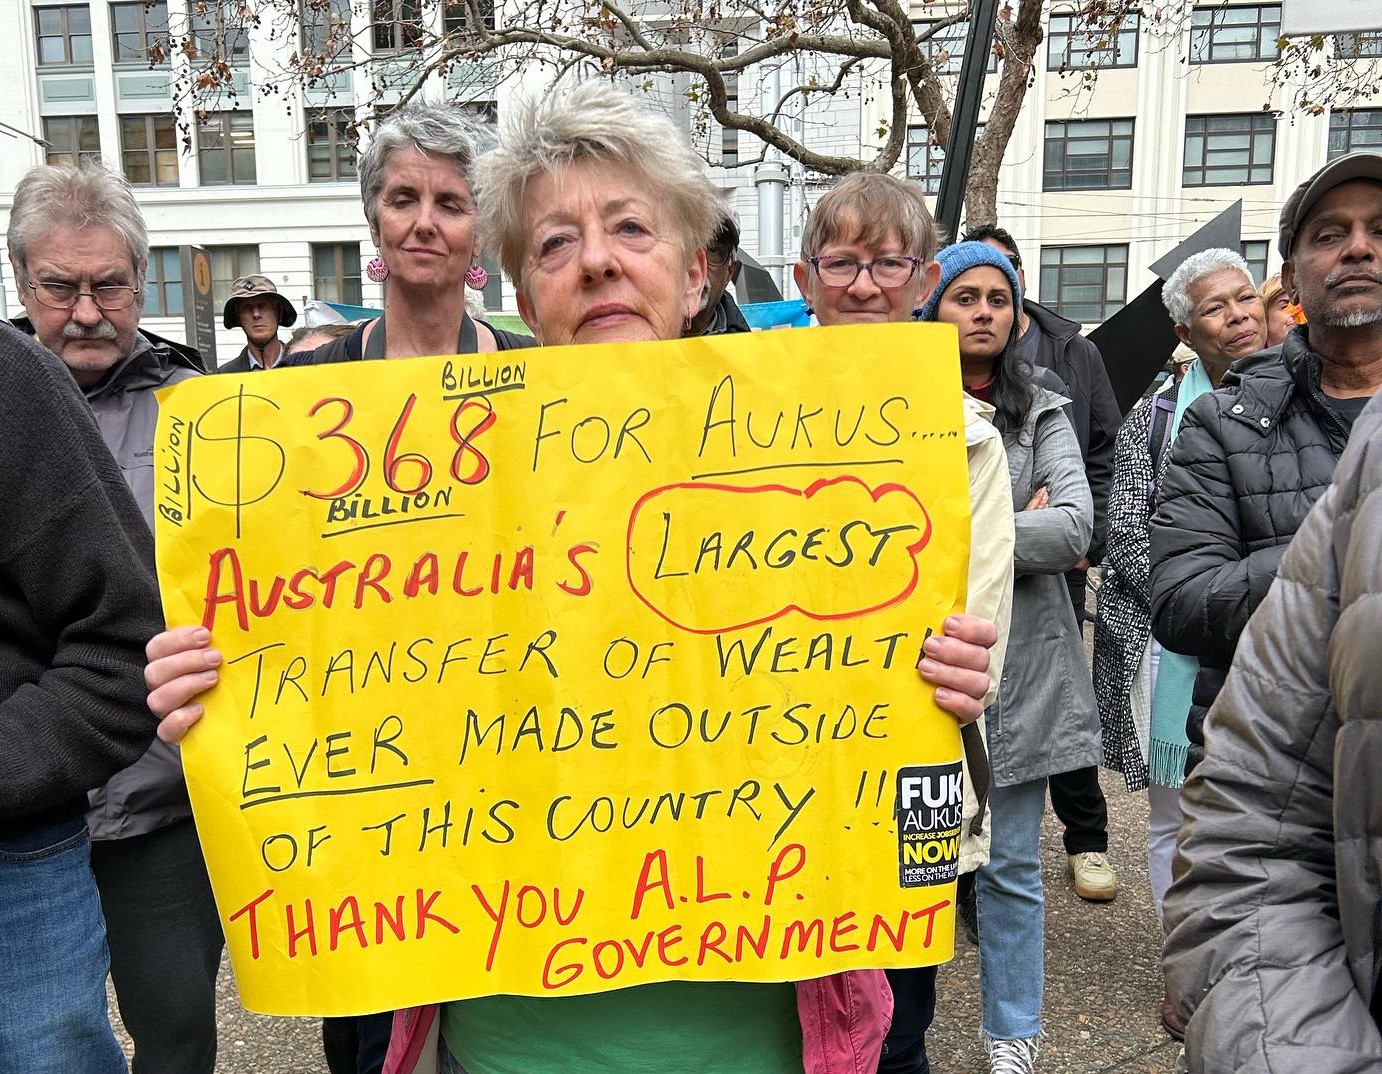 BILLION
BILLION
$368 FOR AUKUS.....
BILLION
AUSTRALIA'S LARGEST
TRANSFER OF WEALTH
EVER MADE OUTSIDE
OF THIS COUNTRY !!!
THANK YOU A.L.P.
GOVERNMENT
FUK
AUKUS
INCREASE
NOW
MORE ON THE
LESS ON THE